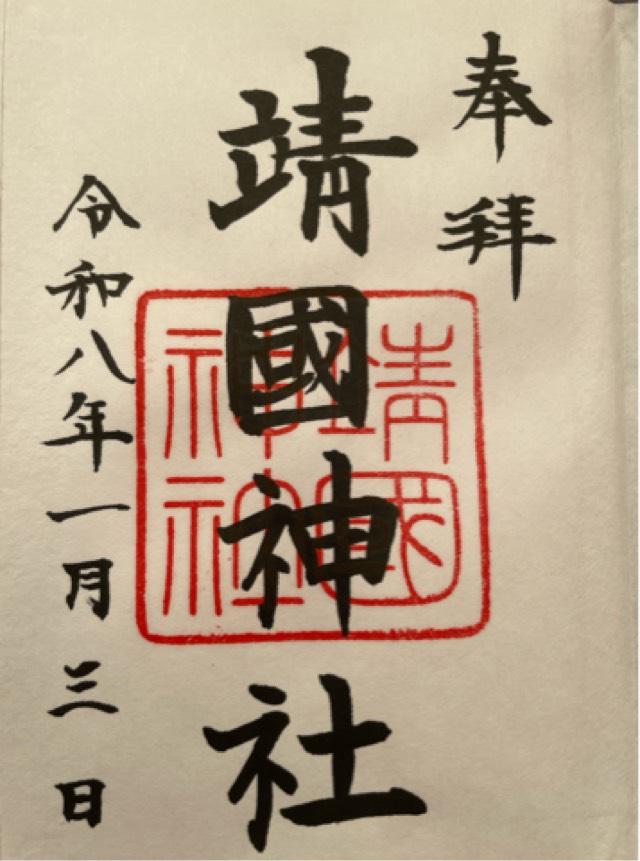 奉拜
靖國神社
令和八年一月三日
靖國
神社